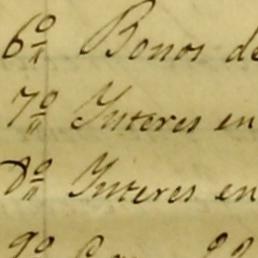 6º Bonos de
7º Interes en
8º Interes en
9º